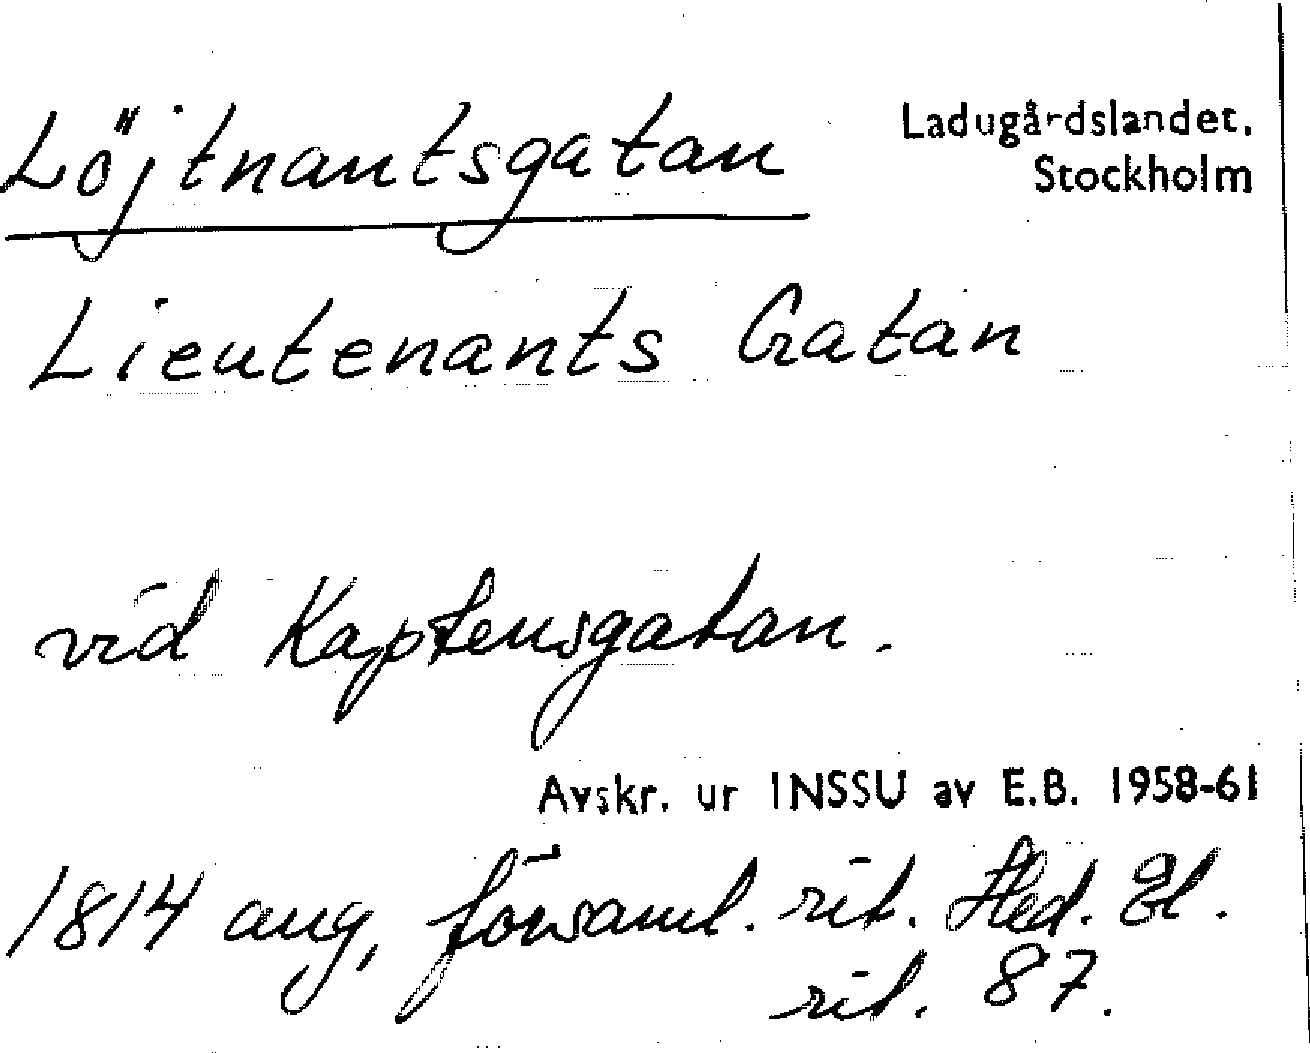 Löjtnantsgatan
Ladugårdslandet.
Stockholm
Lieutenants Gatan
vid Kaptensgatan.
Avskr. ur INSSU av E.B. 1958-61
1814 aug, församl. rit. Hed. El.
rit. 87.